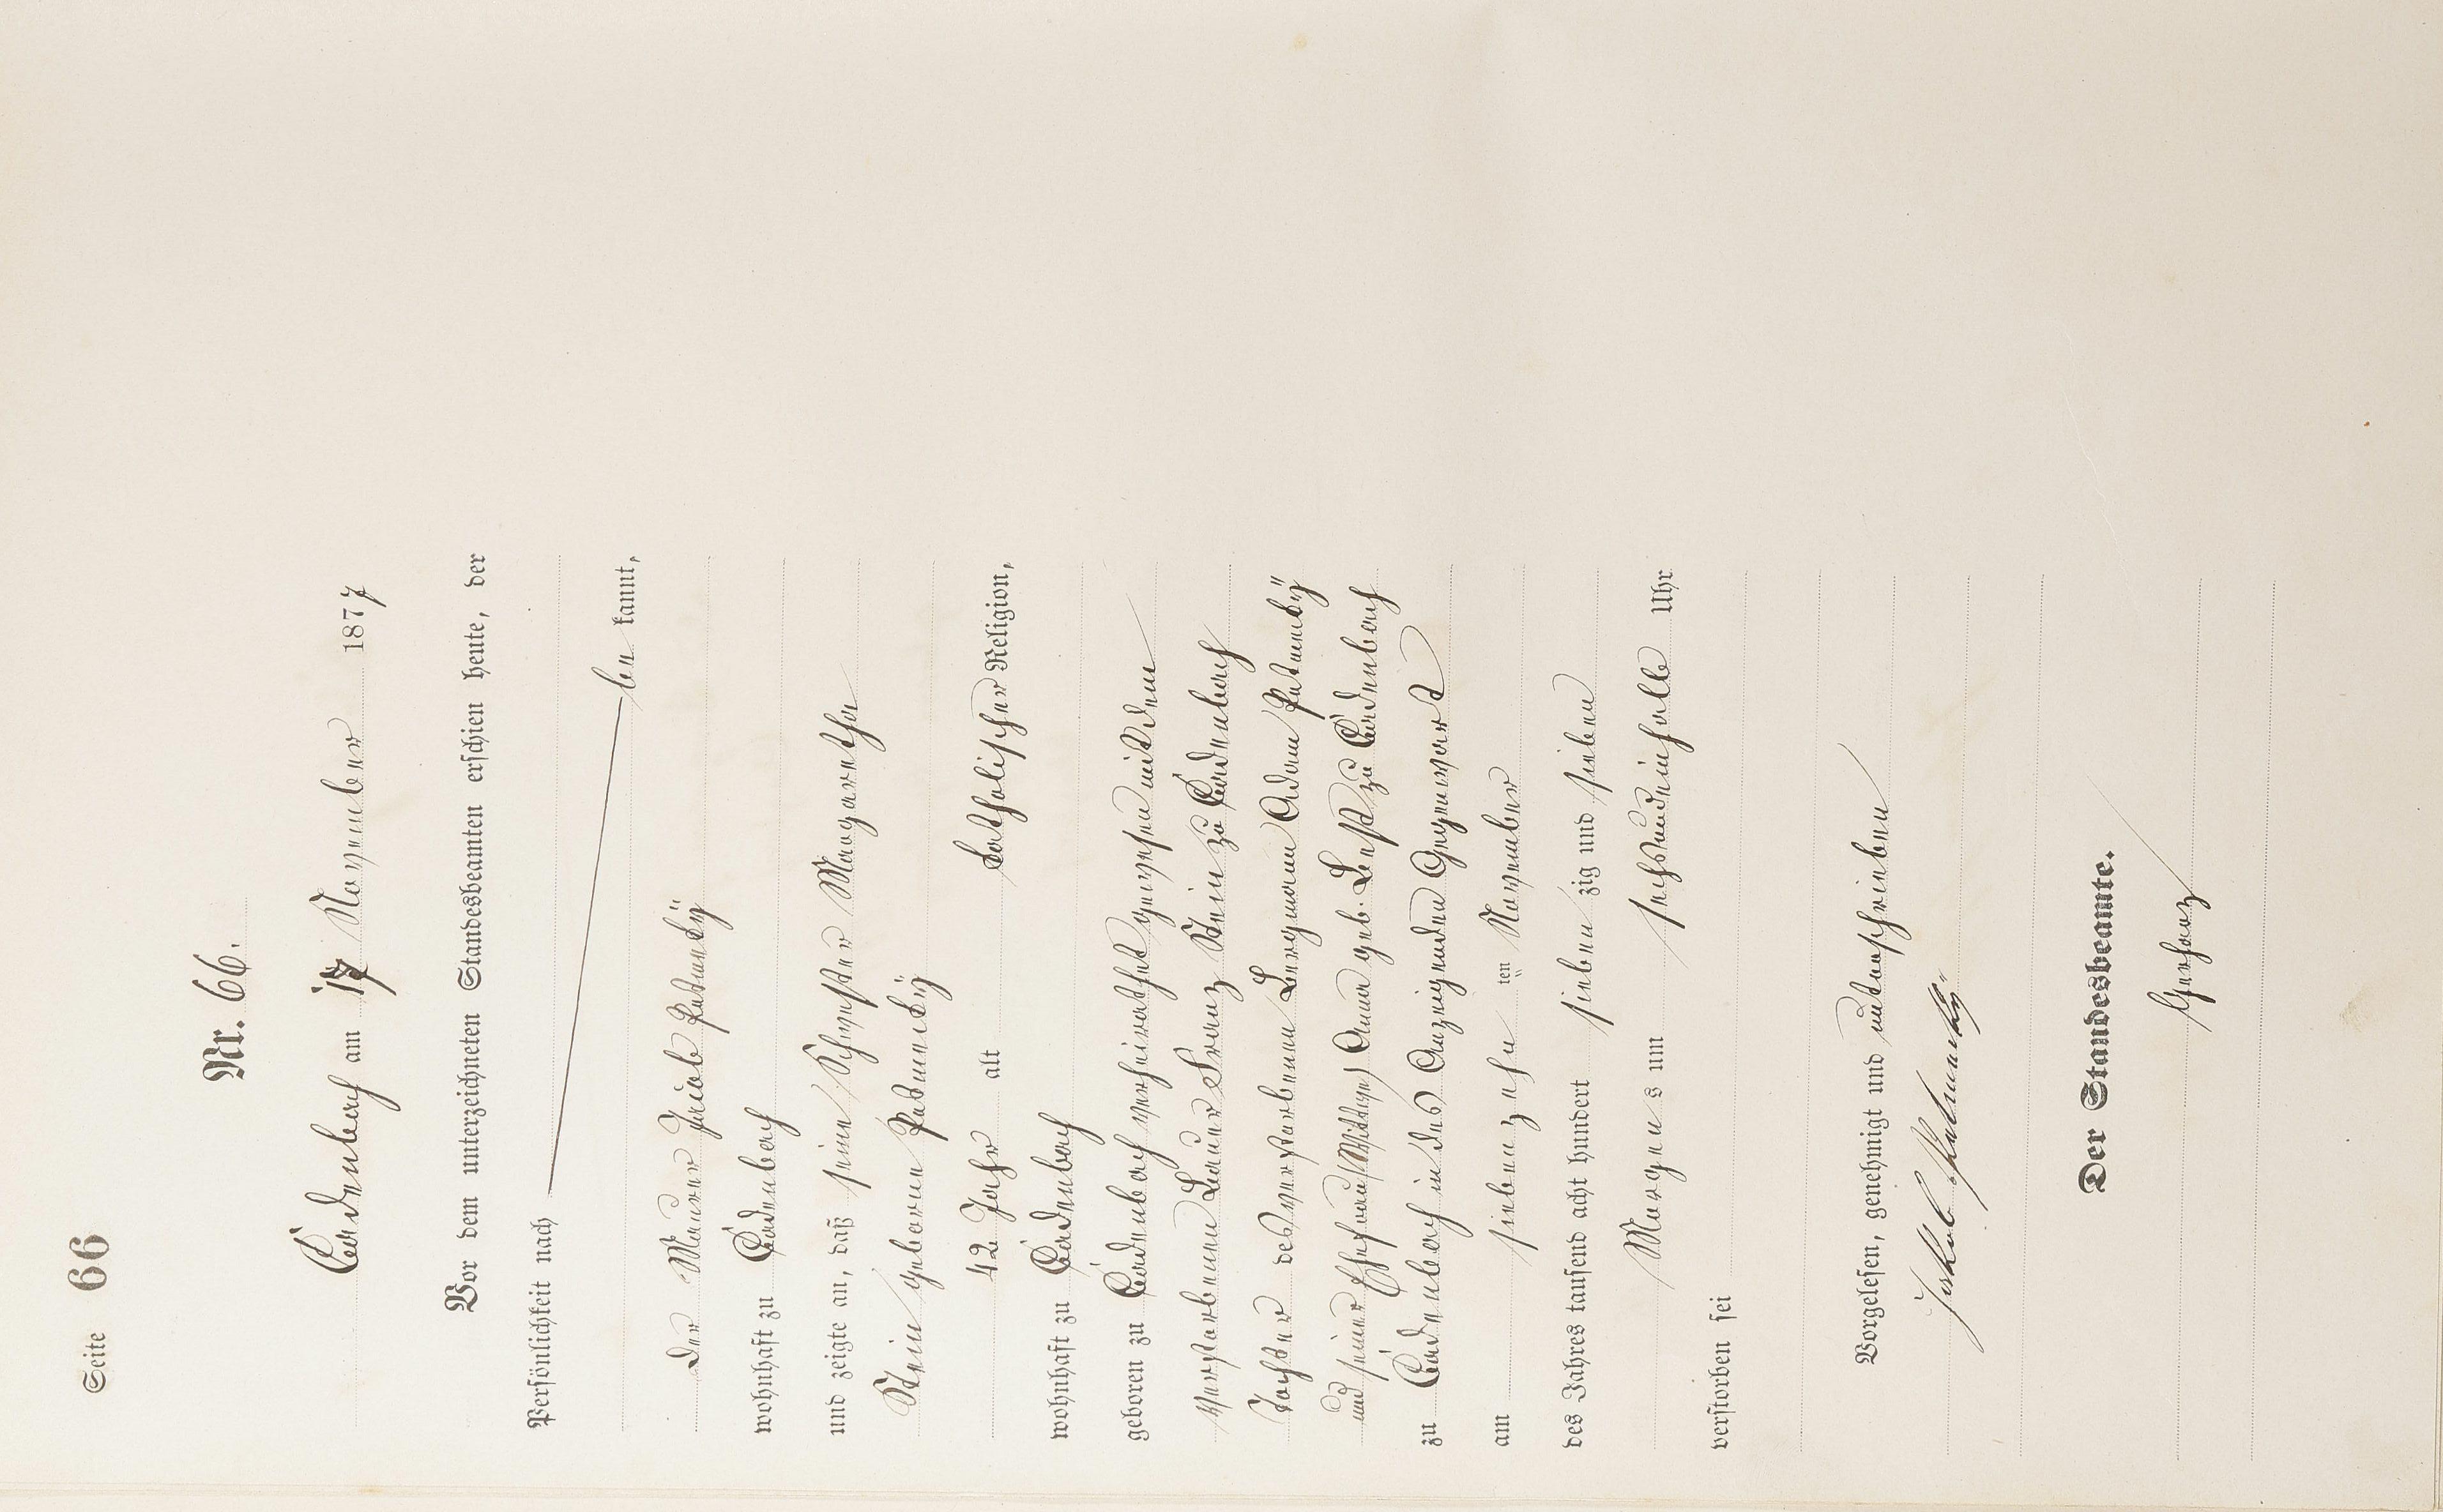 Seite 66
Nr. 66.
Cadenbach am 17 November 1877
Vor dem unterzeichneten Standesbeamten erschien heute, der
Persönlichkeit nach
be kannt,
der Maurer Jacob
wohnhaft zu Cadenbach
und zeigte an, daß seine Schwester Margaretha
Stein geborne
42 Jahr alt katholischer Religion,
wohnhaft zu Cadenbach
geboren zu Cadenbach verheirathet gewesen mit dem
verstorbenen Bauer Franz Stein zu Cadenbach
Tochter des verstorbenen Bergmann Adam
und seiner Ehefrau (Wittwe) Anna geb. zu Cadenbach
zu Cadenbach in des Anzeigenden Gegenwart
am siebenzehn ten November
des Jahres tausend acht hundert sieben zig und sieben
Morgen s um sechs und ein halb Uhr
verstorben sei
Vorgelesen, genehmigt und unterschrieben
Jakob
Der Standesbeamte.
Gerharz